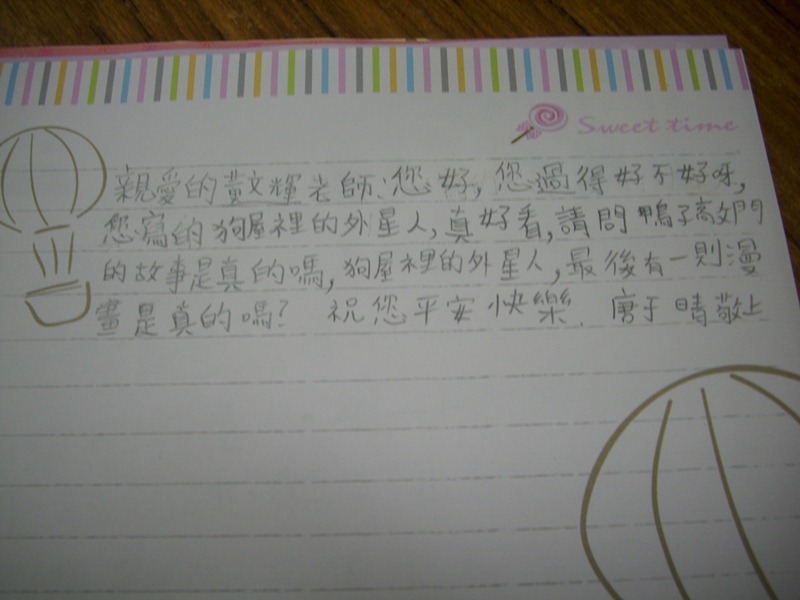 Sweet time
親愛的黃文輝老師:您好,您過得好不好呀,
您寫的狗屋裡的外星人,真好看,請問鴨子高文門
的故事是真的嗎,狗屋裡的外星人,最後有一則漫
畫是真的嗎? 祝您平安快樂. 唐于晴敬上